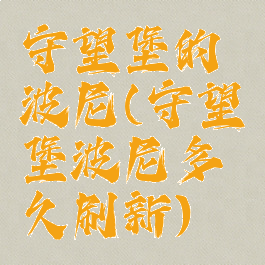 守望堡的
波尼(守望
堡波尼多
久刷新)